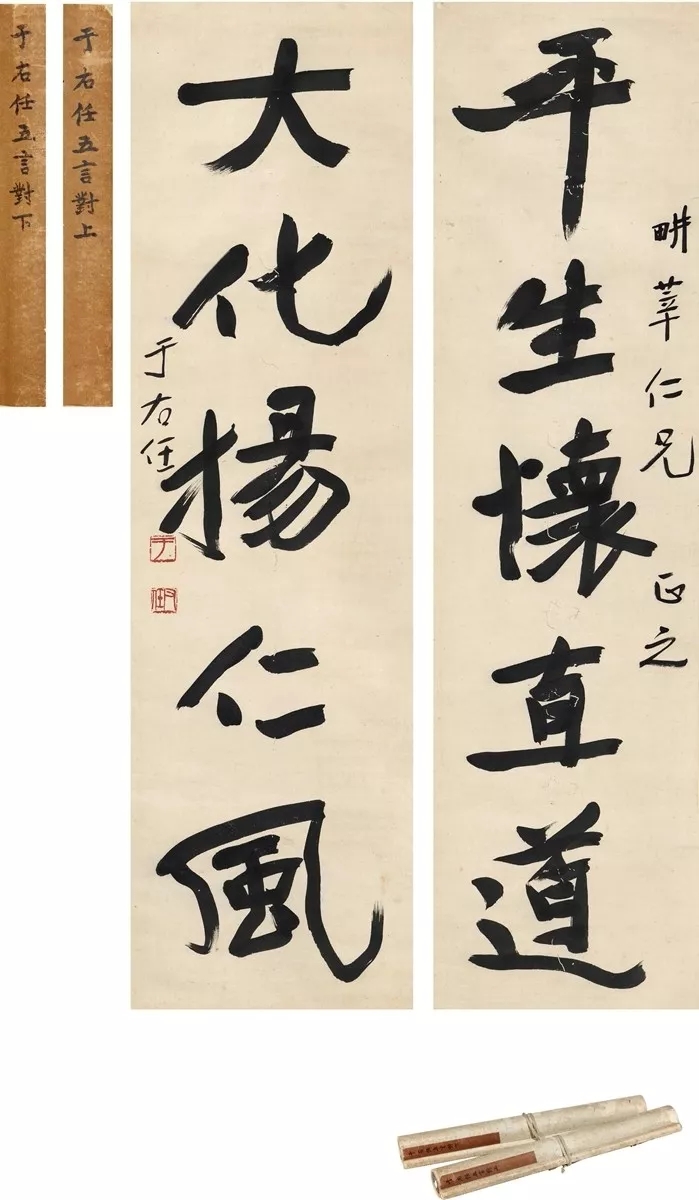 畊莘仁兄 正之
平生懷直道
大化揚仁風
于右任
于右任五言對上
于右任五言對下